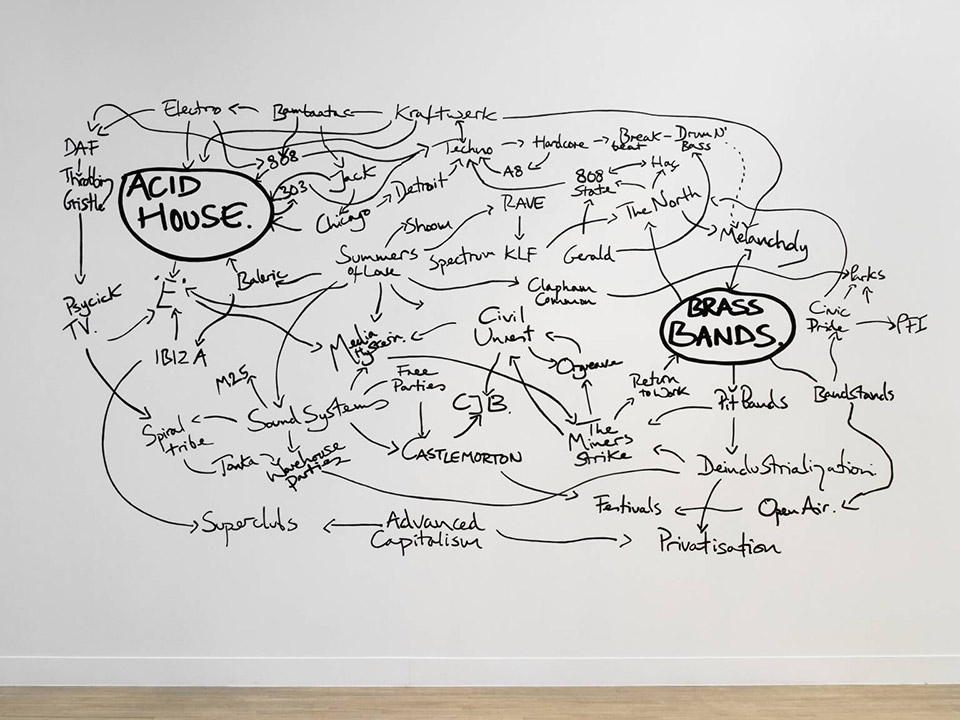 Electro
Bambaataa
Kraftwerk
DAF
Throbbing
Gristle
ACID
HOUSE.
808
303
Jack
Chicago
Detroit
Techno
Hardcore
Break-
beat
Drum N'
Bass
A8
808
State
Hac
RAVE
The North
Shoom
Summers
of Love
Spectrum
KLF
Gerald
Melancholy
Baleric
'E'.
Clapham
Common
Parks
Psycick
TV.
IBIZA
Media
Hysteria.
Civil
Unrest
Orgreave
BRASS
BANDS.
Civic
Pride
PFI
M25
Free
Parties
CJB.
Return
to Work
Pit Bands
Bandstands
Spiral
tribe
Sound Systems
Tonka
Warehouse
Parties
CASTLEMORTON
The
Miners
Strike
Deindustrialization.
Festivals
Open Air.
Superclubs
Advanced
Capitalism
Privatisation